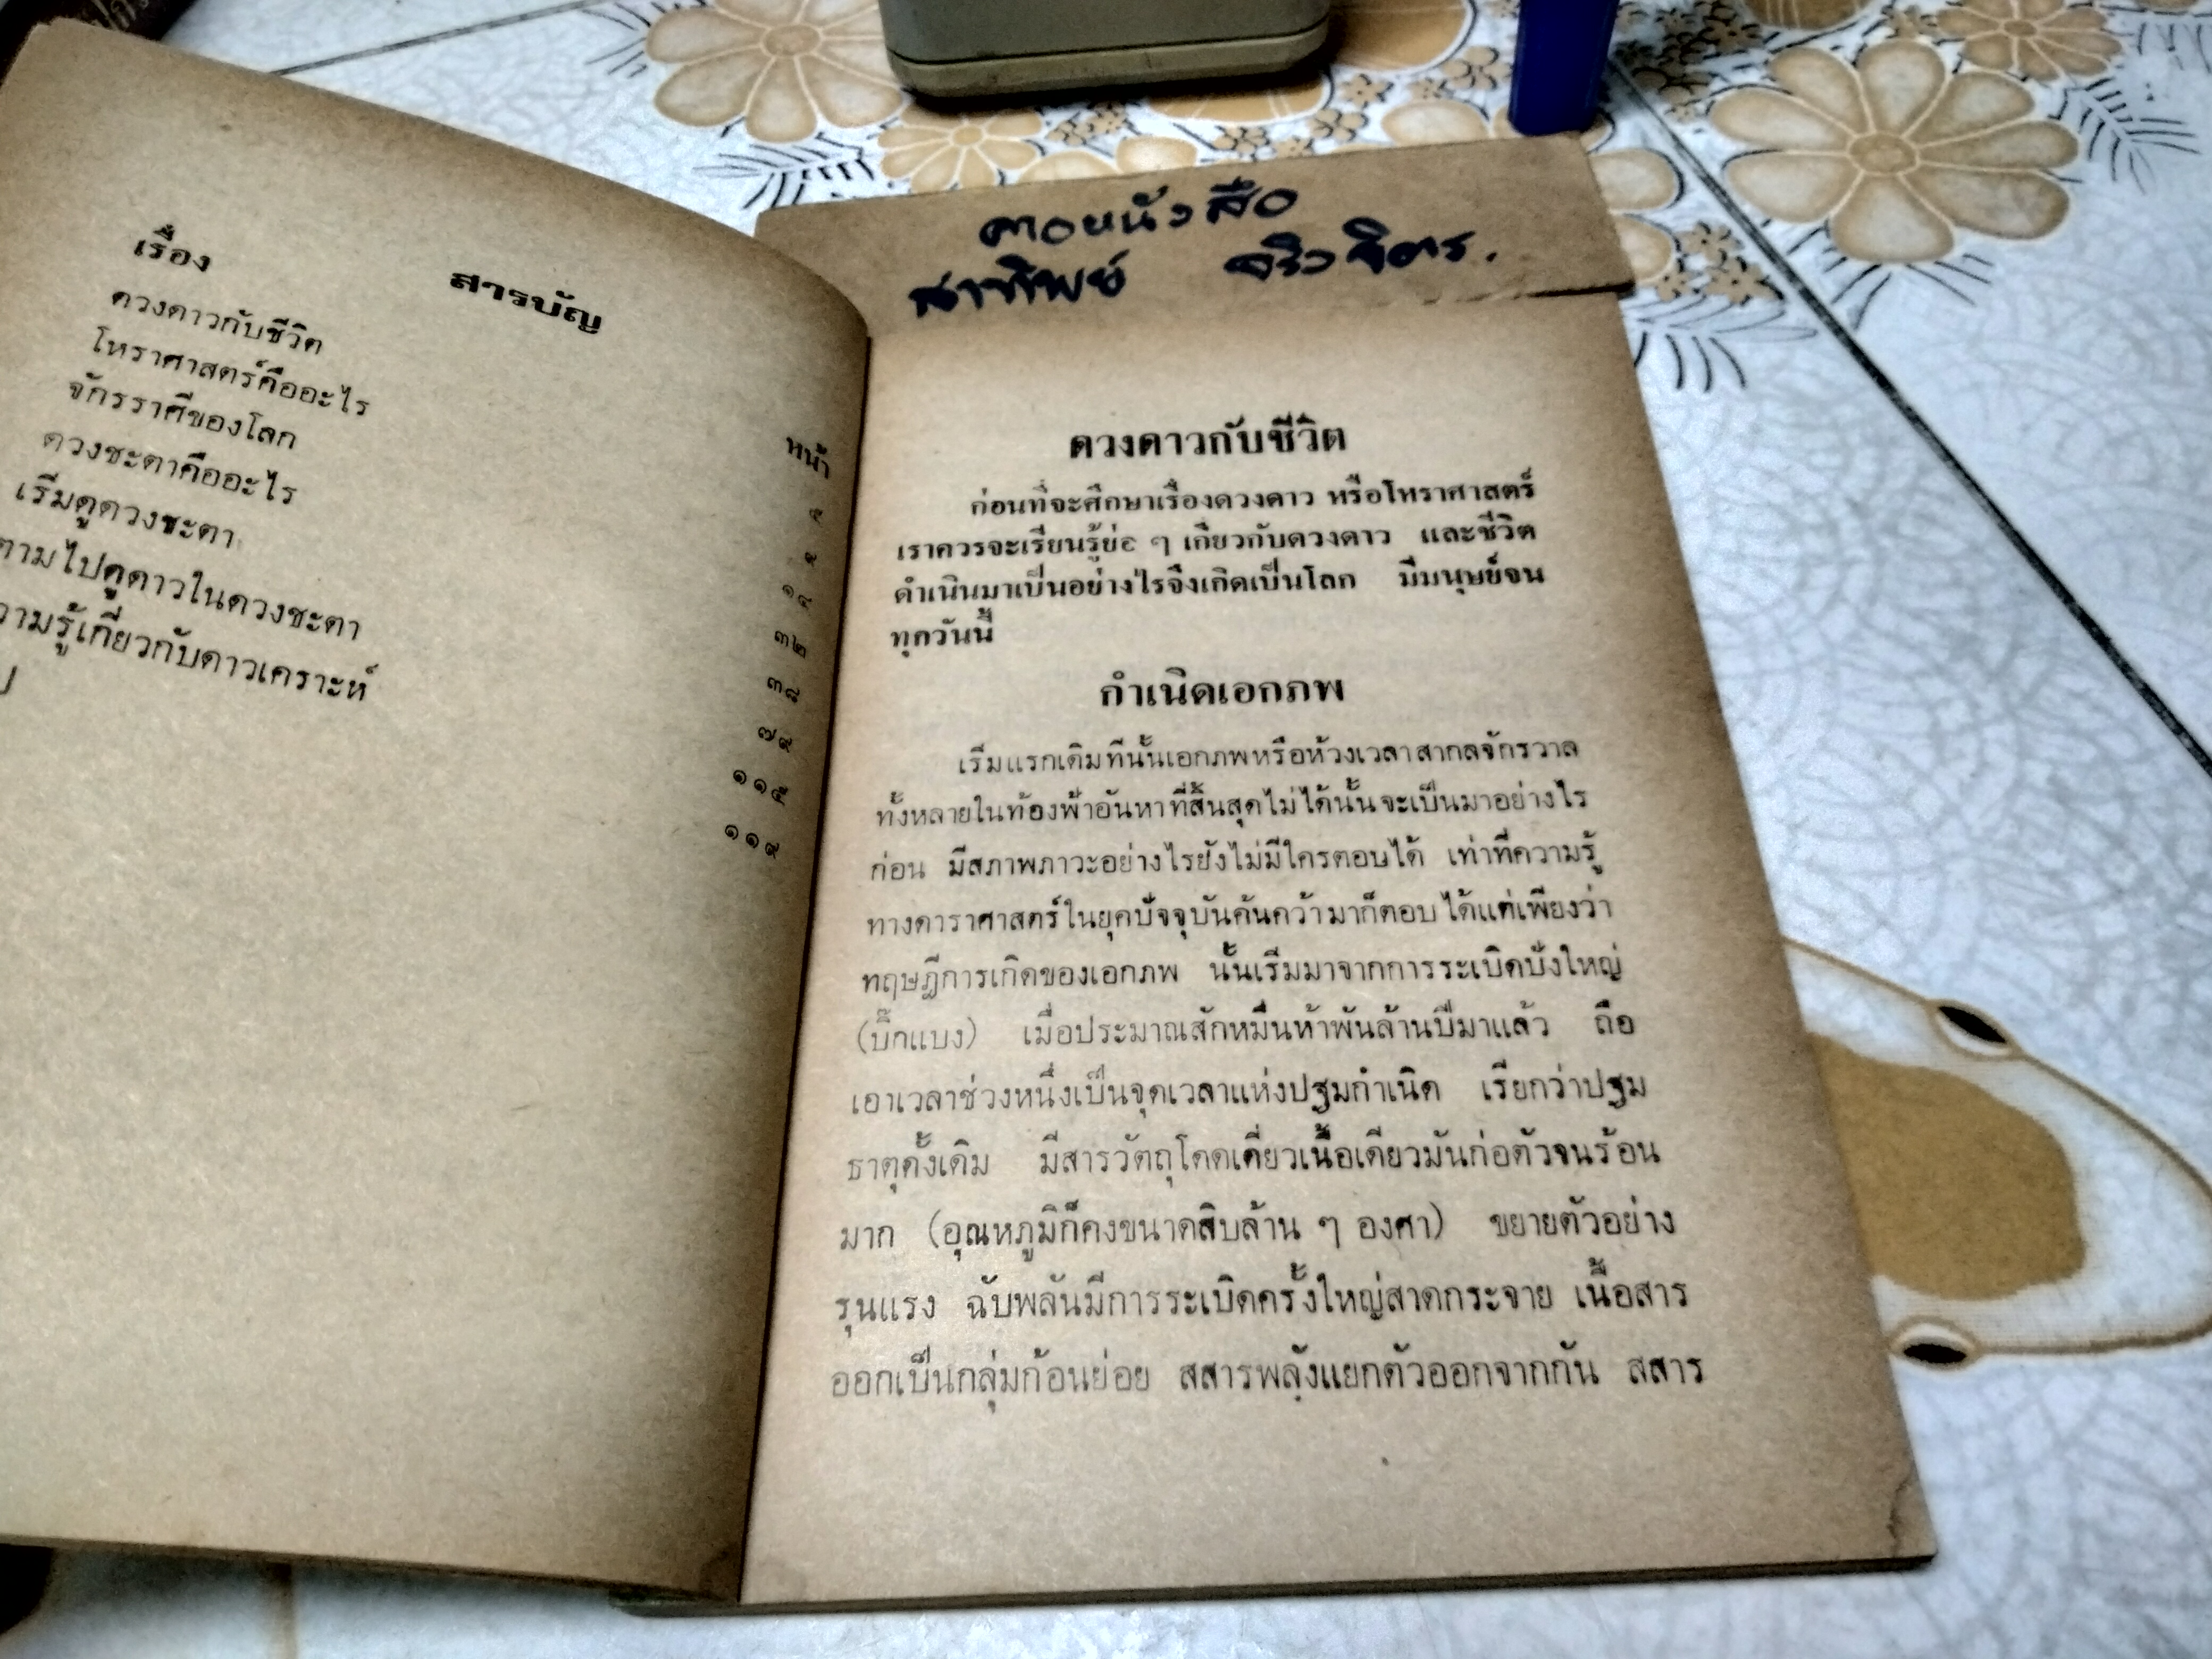 สารบัญ
เรื่อง
หน้า
ดวงดาวกับชีวิต ๕
โหราศาสตร์คืออะไร ๙
จักรราศีของโลก ๑๔
ดวงชะตาคืออะไร ๓๒
เริ่มดูดวงชะตา ๓๘
ตามไปดูดาวในดวงชะตา ๗๙
วามรู้เกี่ยวกับดาวเคราะห์ ๑๑๕
๑๑๙
จิตร.
ดวงดาวกับชีวิต
ก่อนที่จะศึกษาเรื่องดวงดาว หรือโหราศาสตร์
เราควรจะเรียนรู้ย่อ ๆ เกี่ยวกับดวงดาว และชีวิต
ดำเนินมาเป็นอย่างไรจึงเกิดเป็นโลก มีมนุษย์จน
ทุกวันนี้
กำเนิดเอกภพ
เริ่มแรกเดิมทีนั้นเอกภพหรือห้วงเวลาสากลจักรวาล
ทั้งหลายในท้องฟ้าอันหาที่สิ้นสุดไม่ได้นั้นจะเป็นมาอย่างไร
ก่อน มีสภาพภาวะอย่างไรยังไม่มีใครตอบได้ เท่าที่ความรู้
ทางดาราศาสตร์ในยุคปัจจุบันค้นคว้ามาก็ตอบได้แต่เพียงว่า
ทฤษฎีการเกิดของเอกภพ นั้นเริ่มมาจากการระเบิดปังใหญ่
(บิ๊กแบง) เมื่อประมาณสักหมื่นห้าพันล้านปีมาแล้ว ถือ
เอาเวลาช่วงหนึ่งเป็นจุดเวลาแห่งปฐมกำเนิด เรียกว่าปฐม
ธาตุดั้งเดิม มีสารวัตถุโดดเดี่ยวเนื้อเดียวมันก่อตัวจนร้อน
มาก (อุณหภูมิก็คงขนาดสิบล้าน ๆ องศา) ขยายตัวอย่าง
รุนแรง ฉับพลันมีการระเบิดครั้งใหญ่สาดกระจาย เนื้อสาร
ออกเป็นกลุ่มก้อนย่อย สสารพลังแยกตัวออกจากกัน สสาร